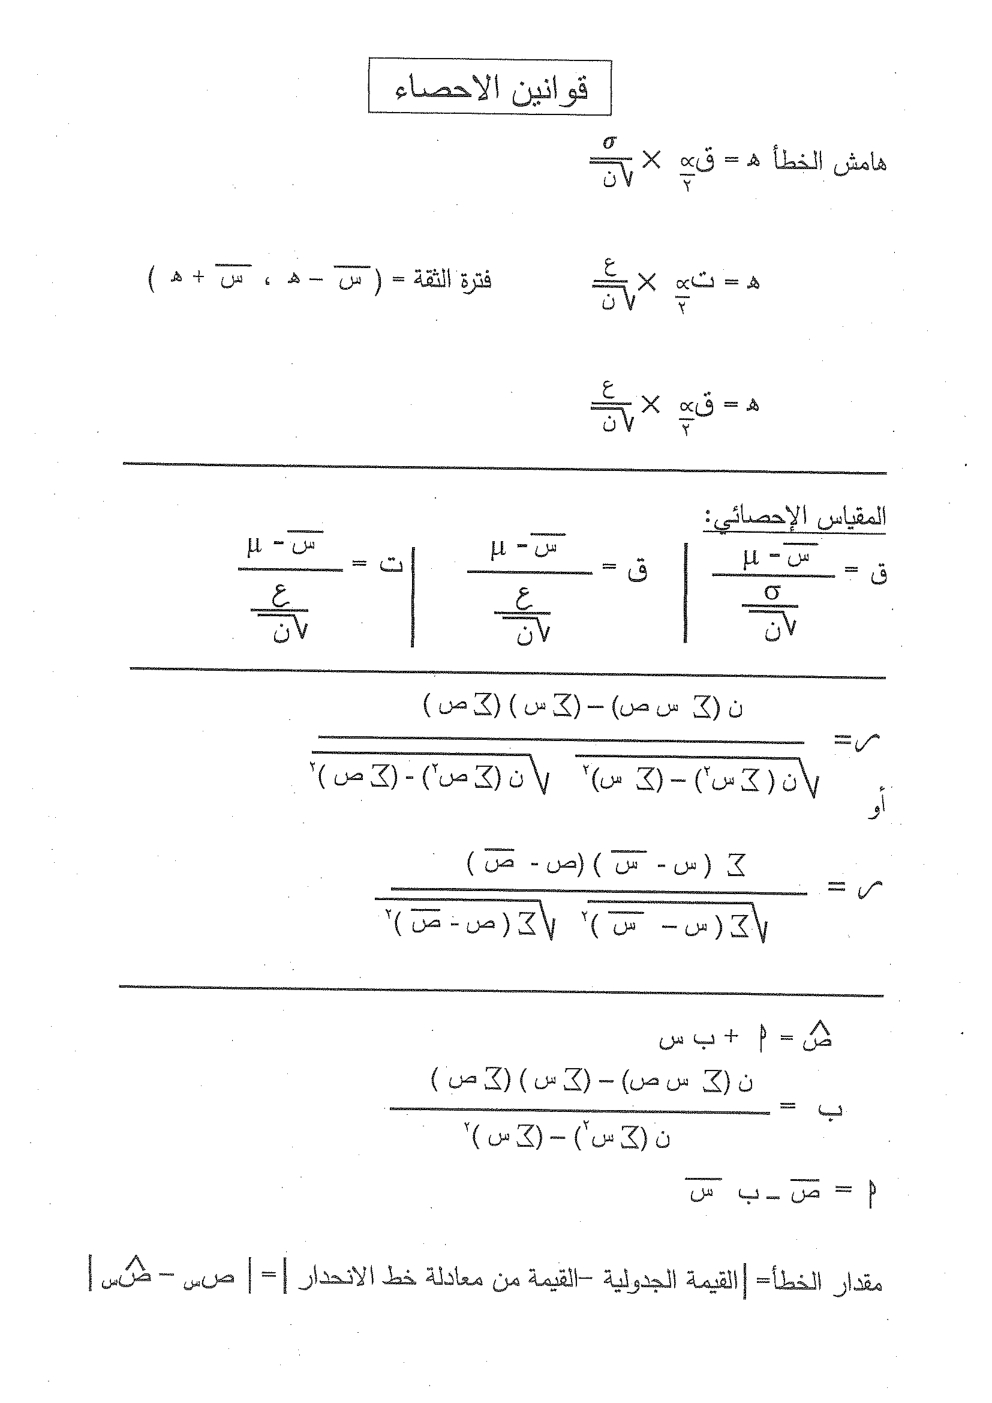 قوانين الاحصاء
هامش الخطأ ه = ق∝/٢ × σ/√ن
ه = ت∝/٢ × ع/√ن فترة الثقة = ( س̅ – ه ، س̅ + ه )
ه = ق∝/٢ × ع/√ن
المقياس الإحصائي:
ق = (س̅ - μ)/(σ/√ن) | ق = (س̅ - μ)/(ع/√ن) | ت = (س̅ - μ)/(ع/√ن)
ن (∑ س ص) – (∑ س ) (∑ ص )
ر =
√ن ( ∑ س٢) – (∑ س)٢ √ن (∑ ص٢) - (∑ ص )٢
أو
∑ ( س - س̅ ) (ص - ص̅ )
ر =
√∑ ( س – س̅ )٢ √∑ ( ص - ص̅ )٢
ص̂ = أ + ب س
ن (∑ س ص) – (∑ س ) (∑ ص )
ب =
ن (∑ س٢) – (∑ س )٢
أ = ص̅ – ب س̅
مقدار الخطأ= |القيمة الجدولية –القيمة من معادلة خط الانحدار |= | صس – ص̂س |